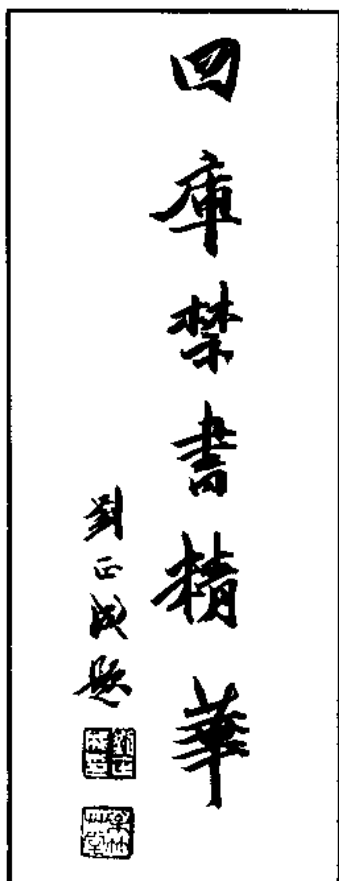 四庫禁書精華
劉正成題